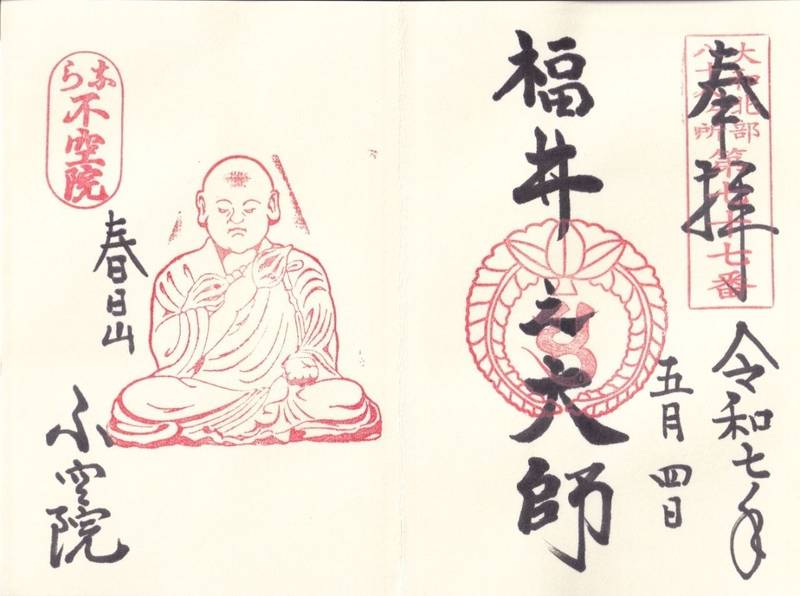 奉拝
大和北部
八十八所
第七十七番
令和七年
五月四日
福井之大師
なら
不空院
春日山
不空院